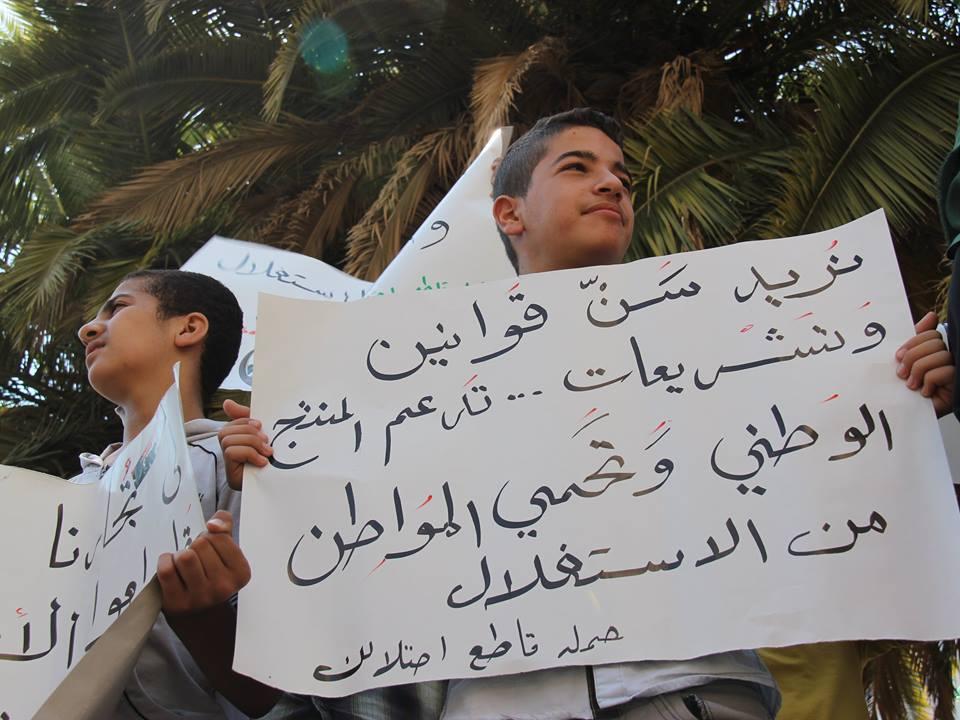 نريد سَنّ قَوانين
وَتشْريعات... تَدعم المنتج
الوَطني وَتَحمي المُواطن
من الاستغلال
حملة قاطع احتلالك
و
استغلال
قاطع
تُجارنا